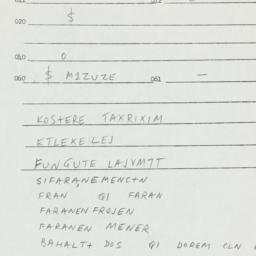 020 $
040 0
060 $ M1ZUZE 061 —
KOSTERE TAXRIXIM
ETLEXEILEJ
FUNGUTE LAJVM7T
SIFARA,NEMENCTN
FRAN QI FARAN
FARANEN FROJEN
FARANEN MENER
BAHALT+ DOS QI DOREM CLN